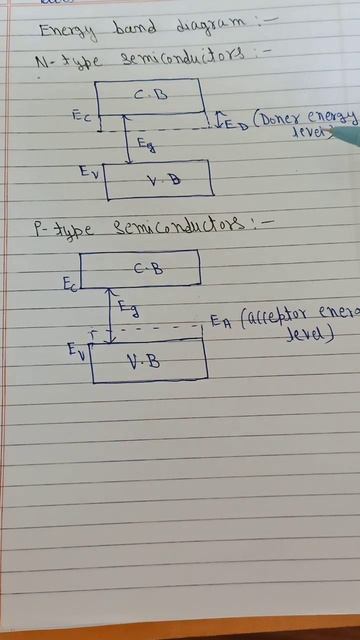 Energy band diagram :-
N-type semiconductors :-
C.B
EC
ED (Doner energy
level)
Eg
EV
V.B
P-type semiconductors :-
C.B
EC
Eg
EA (acceptor energ
level)
EV
V.B